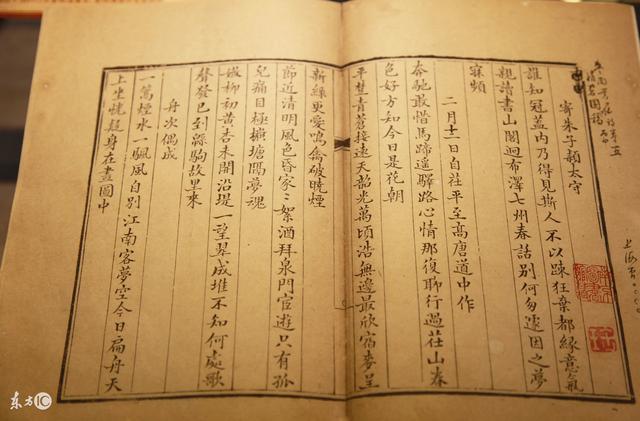 寄朱子頴太守
誰知冠蓋内乃得見斯人不以踈狂棄都緣意氣
親讀書山閣迥布澤七州春話别何匆遽因之夢
寐頻
二月十二日自茌平至高唐道中作
奔馳敢惜馬蹄遥驛路心情那復聊行過茌山春
色好方知今日是花朝
平楚青蒼接遠天韶光萬頃浩無邊最欣宿麥呈
新綠更愛鳴禽破曉煙
節近清明風色昏家〻絮酒拜泉門宦遊只有孤
兒痛目極橫塘隔夢魂
嫩柳初黄杏未開沿堤一望翠成堆不知何處歌
聲發已到緜駒故里來
舟次偶成
一篙煙水一颿風自别江南客夢空今日扁舟天
上坐恍疑身在畫圖中
东方IC